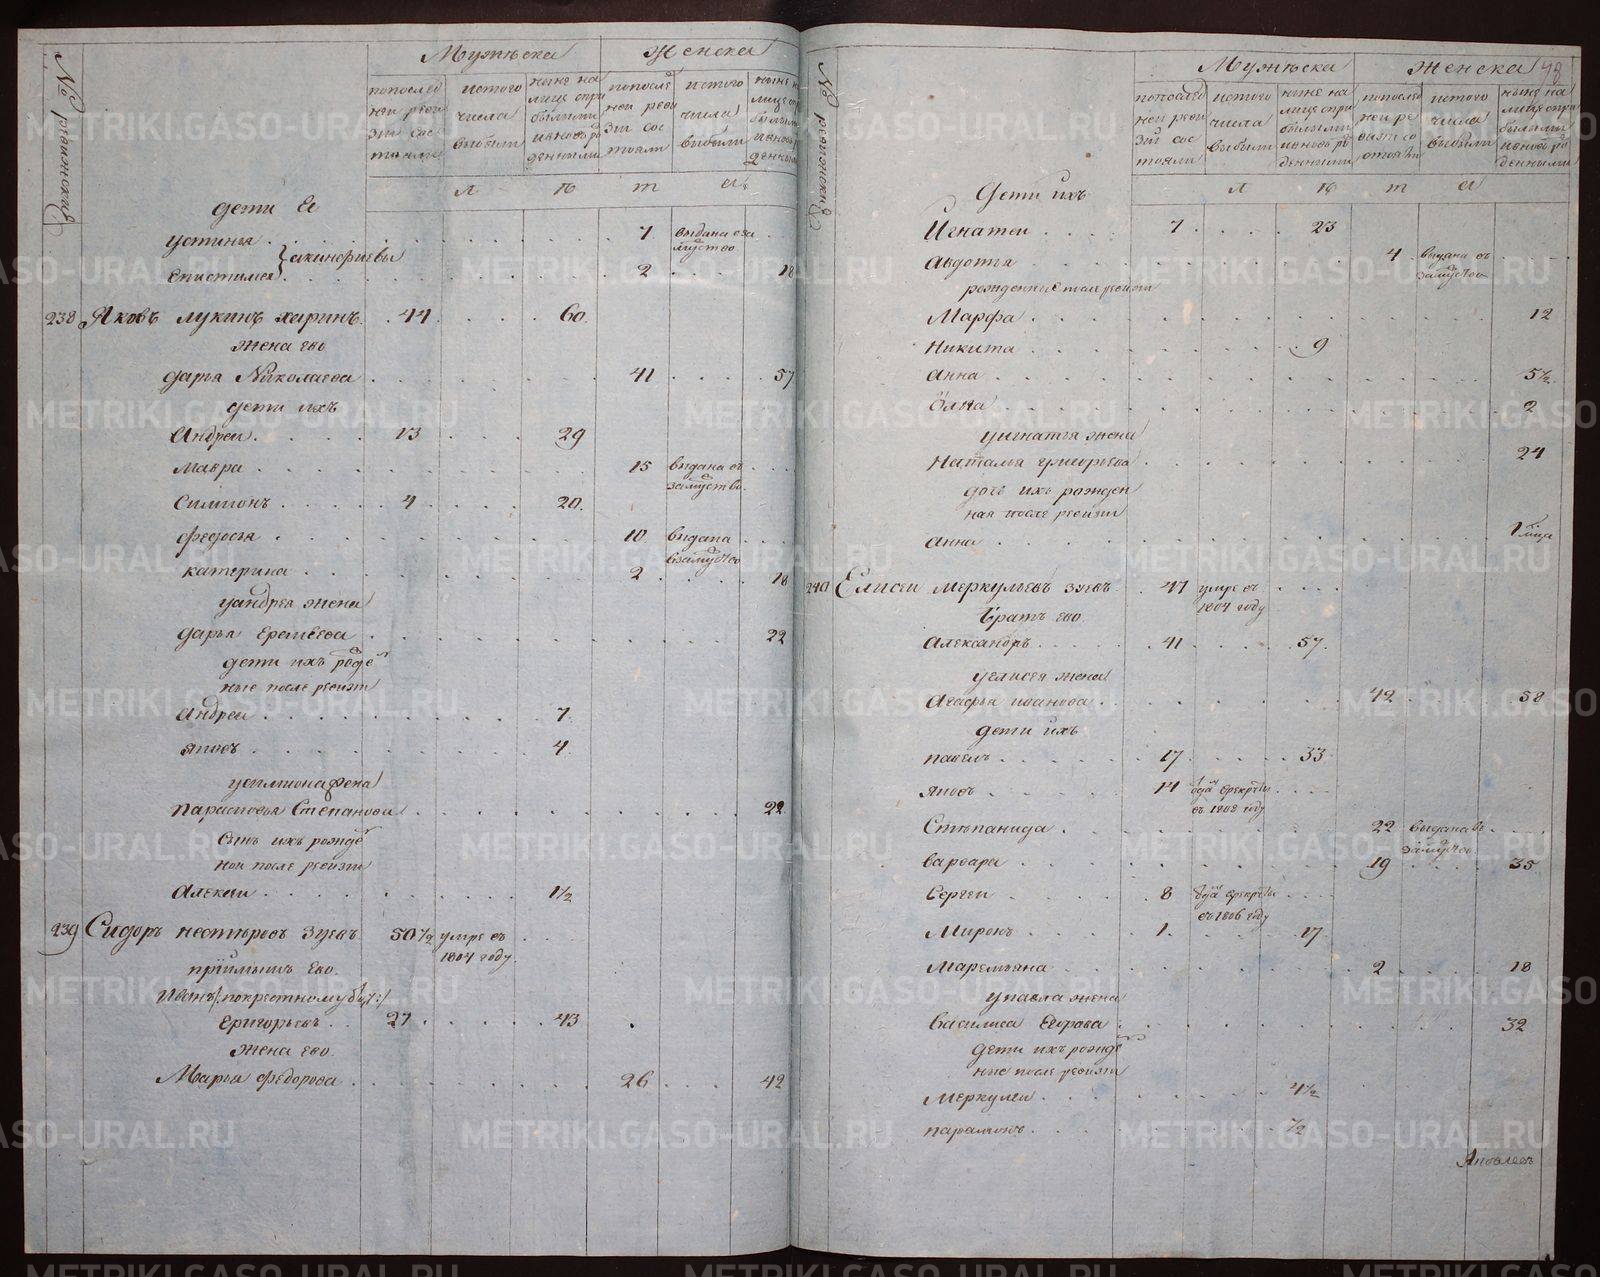 № ревижския
Мужеска
Женска
попослед
ней реви
зии сос
тояли
истого
числа
выбыли
ныне на
лицо при
былыми
ивновь ро
денными
попослед
ней реви
зии сос
тояли
истого
числа
выбыли
Л Ѣ Т А
дети ее
Устинья . 7 выдана вза
мужство
Акинфиевы
Епистимея . 2 18
238 Яковъ Лукинъ Харинъ 44 60
жена ево
Дарья Николаева 41 57
дети ихъ
Андреи 13 29
Мавра 15 выдана въ
замужство
Симионъ 4 20
Федосья 10 выдана
взамужство
Катерина 2 18
у Андрея жена
Дарья Еремеева 22
дети ихъ рожде
ные после ревизи
Андреи 7
Яковъ 4
у Симиона жена
Парасковья Степанова 22
сынъ ихъ рожде
нои после ревизи
Алексеи 1½
239 Сидоръ Нестеровъ Зуевъ 50½ умре въ
1804 году
приимышъ ево
Иванъ покрестному
Григорьевъ 27 43
жена ево
Марья Федорова 26 42
№ ревижския
Мужеска
Женска 48
попослед
ней реви
зии сос
тояли
истого
числа
выбыли
ныне на
лицо при
былыми
ивновь ро
денными
попослед
ней ре
визи со
стояли
истого
числа
выбыли
ныне на
лицо при
былыми
ивновь ро
денными
Л Ѣ Т А
Дети ихъ
Игнатеи 7 23
Авдотья 4 выдана въ
замужство
рожденные после ревизи
Марфа 12
Никита 9
Анна 5½
Олна 2
у Игнатья жена
Наталья Григорьева 24
дочь ихъ рожден
ная после ревизи
Анна 1 м͠ца
240 Елисеи Меркульевъ Зуевъ 47 умре въ
1804 году
Братъ ево
Александръ 41 57
у Елисея жена
Агафья Иванова 42 58
дети ихъ
Павелъ 17 33
Яковъ 14
въ 1808 году
Степанида 22 выдана въ
замужство
Варвара 19 35
Сергеи 8
въ 1806 году
Миронъ 1 17
Маремьяна 2 18
у Павла жена
Василиса Егорова 32
дети ихъ рожде
ные после ревизи
Меркулеи 4½
Парамонъ ½
Яковлевъ
METRIKI.GASO-URAL.RU